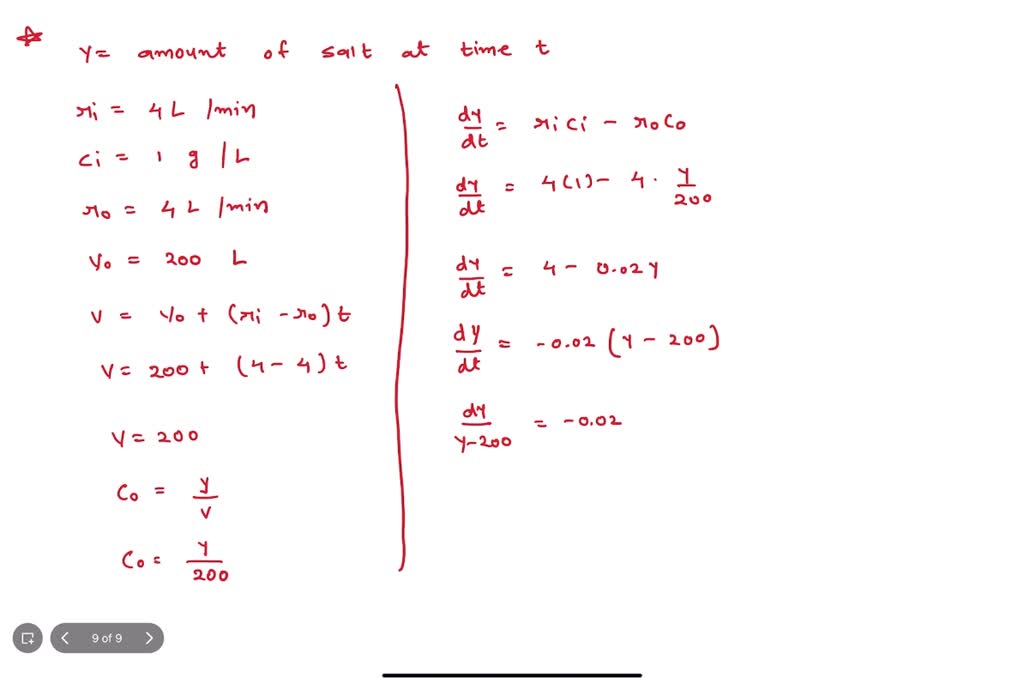 Y = amount of salt at time t
ri = 4 L /min
Ci = 1 g /L
ro = 4 L /min
Vo = 200 L
V = Vo + (ri - ro) t
V = 200 + (4 - 4) t
V = 200
Co = y/V
Co = Y/200
dY/dt = ri Ci - ro Co
dY/dt = 4(1) - 4 · Y/200
dY/dt = 4 - 0.02Y
dY/dt = -0.02 (Y - 200)
dY/Y-200 = -0.02
9 of 9